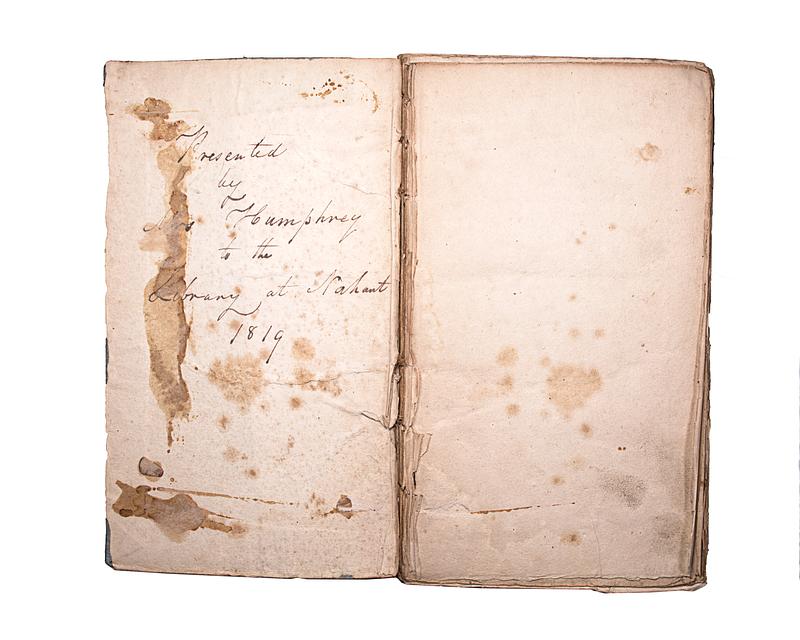 Presented
by
Mrs Humphrey
to the
Library at Nahant
1819